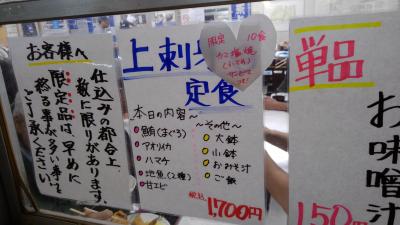 お客様へ
仕込みの都合上
数に限りがあります。
限定品は早めに
終る事が多い事を
ご了承ください
上刺
定食
限定 10食
本日の内容～
鮪(まぐろ)
アオリイカ
ハマチ
地魚(2種)
甘エビ
～その他～
大鉢
小鉢
おみそ汁
ご飯
税込
1,700円
単品
お味噌汁
150円